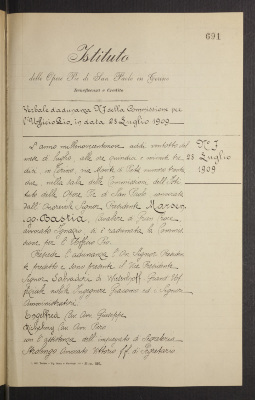 691
Istituto
delle Opere Pie di San Paolo in Torino
Beneficenza e Credito
Verbale d'adunanza N. 7 della Commissione per
l'Ufficio Pio in data 28 Luglio 1909
L'anno millenovecentonove addì ventotto del
N. 7
mese di luglio alle ore quindici e minuti tre
28 Luglio
dici in Torino, via Monte di Pietà numero trenta
1909
due, nella sala delle Commissioni dell'Isti
tuto delle Opere Pie di San Paolo
dall'Onorevole Signor Presidente Marsen
go-Bastia, Cavaliere di Gran Croce
avvocato Ignazio, si è radunata la Commis
sione per l'Ufficio Pio.
Presiede l'adunanza l'On. Signor Presiden
te predetto e sono presenti il Vice Presidente
Signor Salvadori di Wiesenhoff Grand Uff.
nobile Ingegnere Giacomo ed i Signori
Amministratori
Engelfred Cav. Avv. Giuseppe
Cav. Avv. Pio
con l'assistenza dell'impiegato di Segreteria
Avvocato Vittorio ff. di Segretario